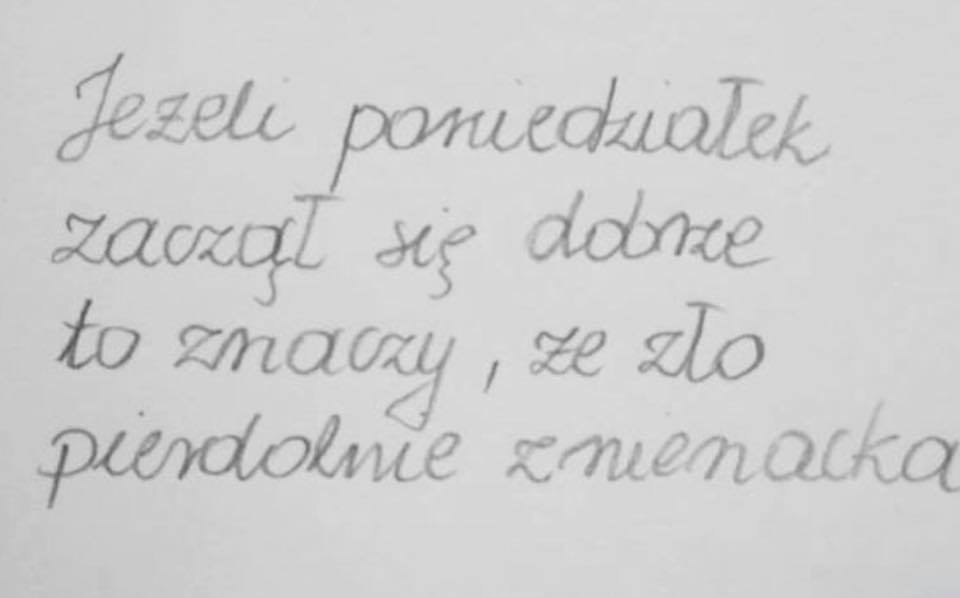 Jeżeli poniedziałek
zaczął się dobrze
to znaczy, ze zło
pierdolnie znienacka